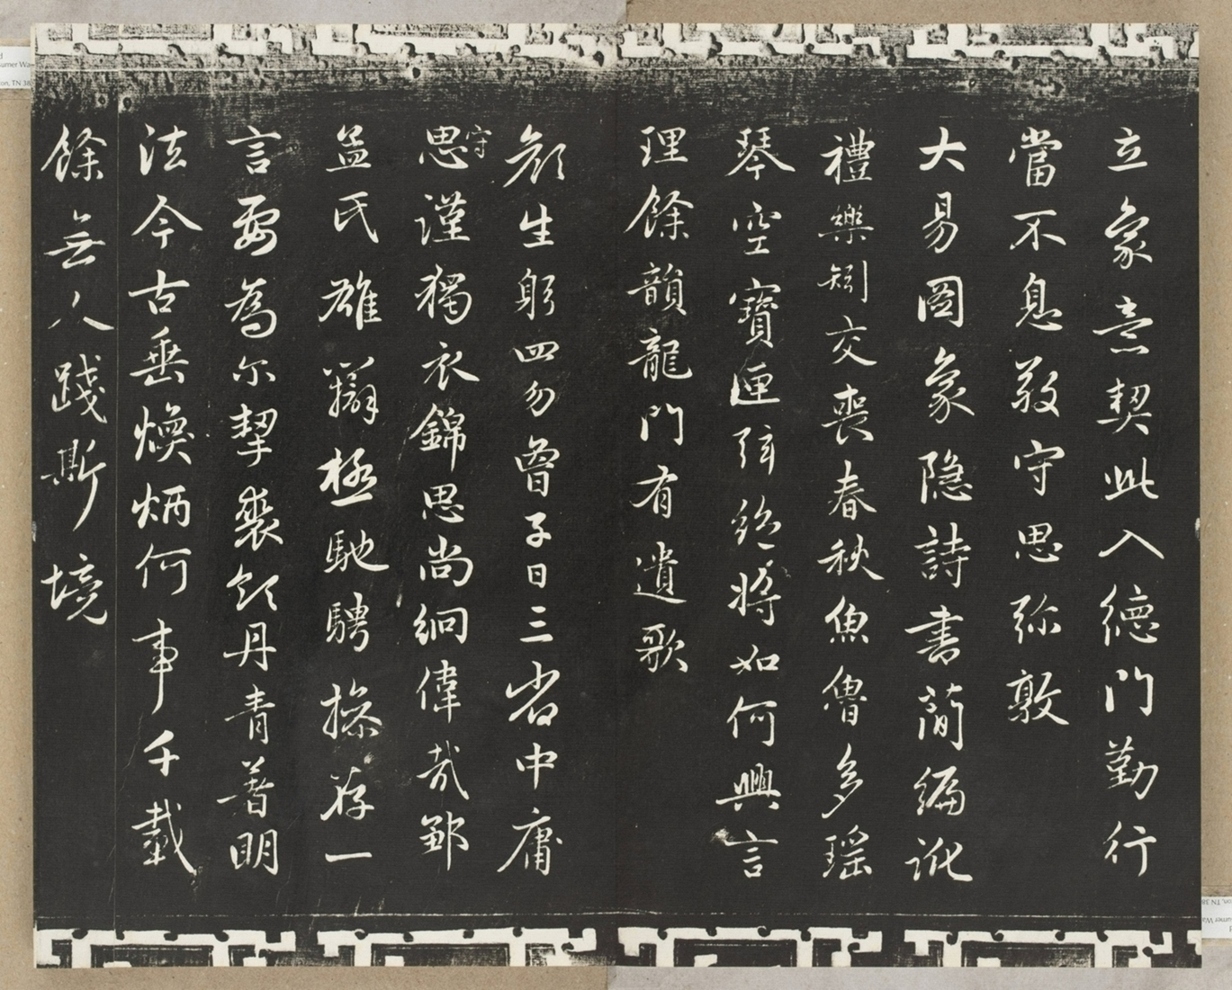 立象意契此入德門勤行
當不息敬守思弥敦
大易圖象隐詩書蕳編訛
禮樂矧交喪春秋魚魯多瑶
琴空寶匣弦絶將如何興言
理餘韻龍門有遺歌
顔生躬四勿曾子日三省中庸
思守謹獨衣錦思尚絅偉哉鄒
孟氏雄辯極馳騁操存一
言要為尔挈裘領丹青著明
法今古垂煥炳何事千載
餘無人踐斯境